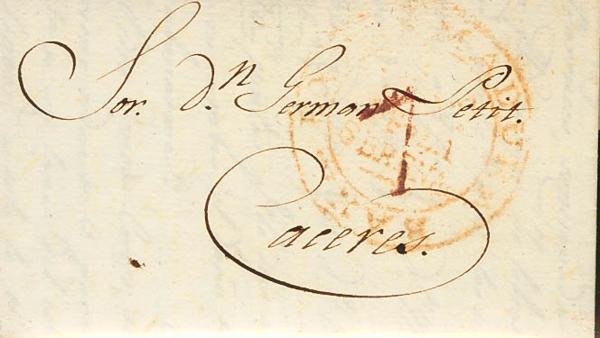 Sor. D.n German Petit.
1
Caceres.